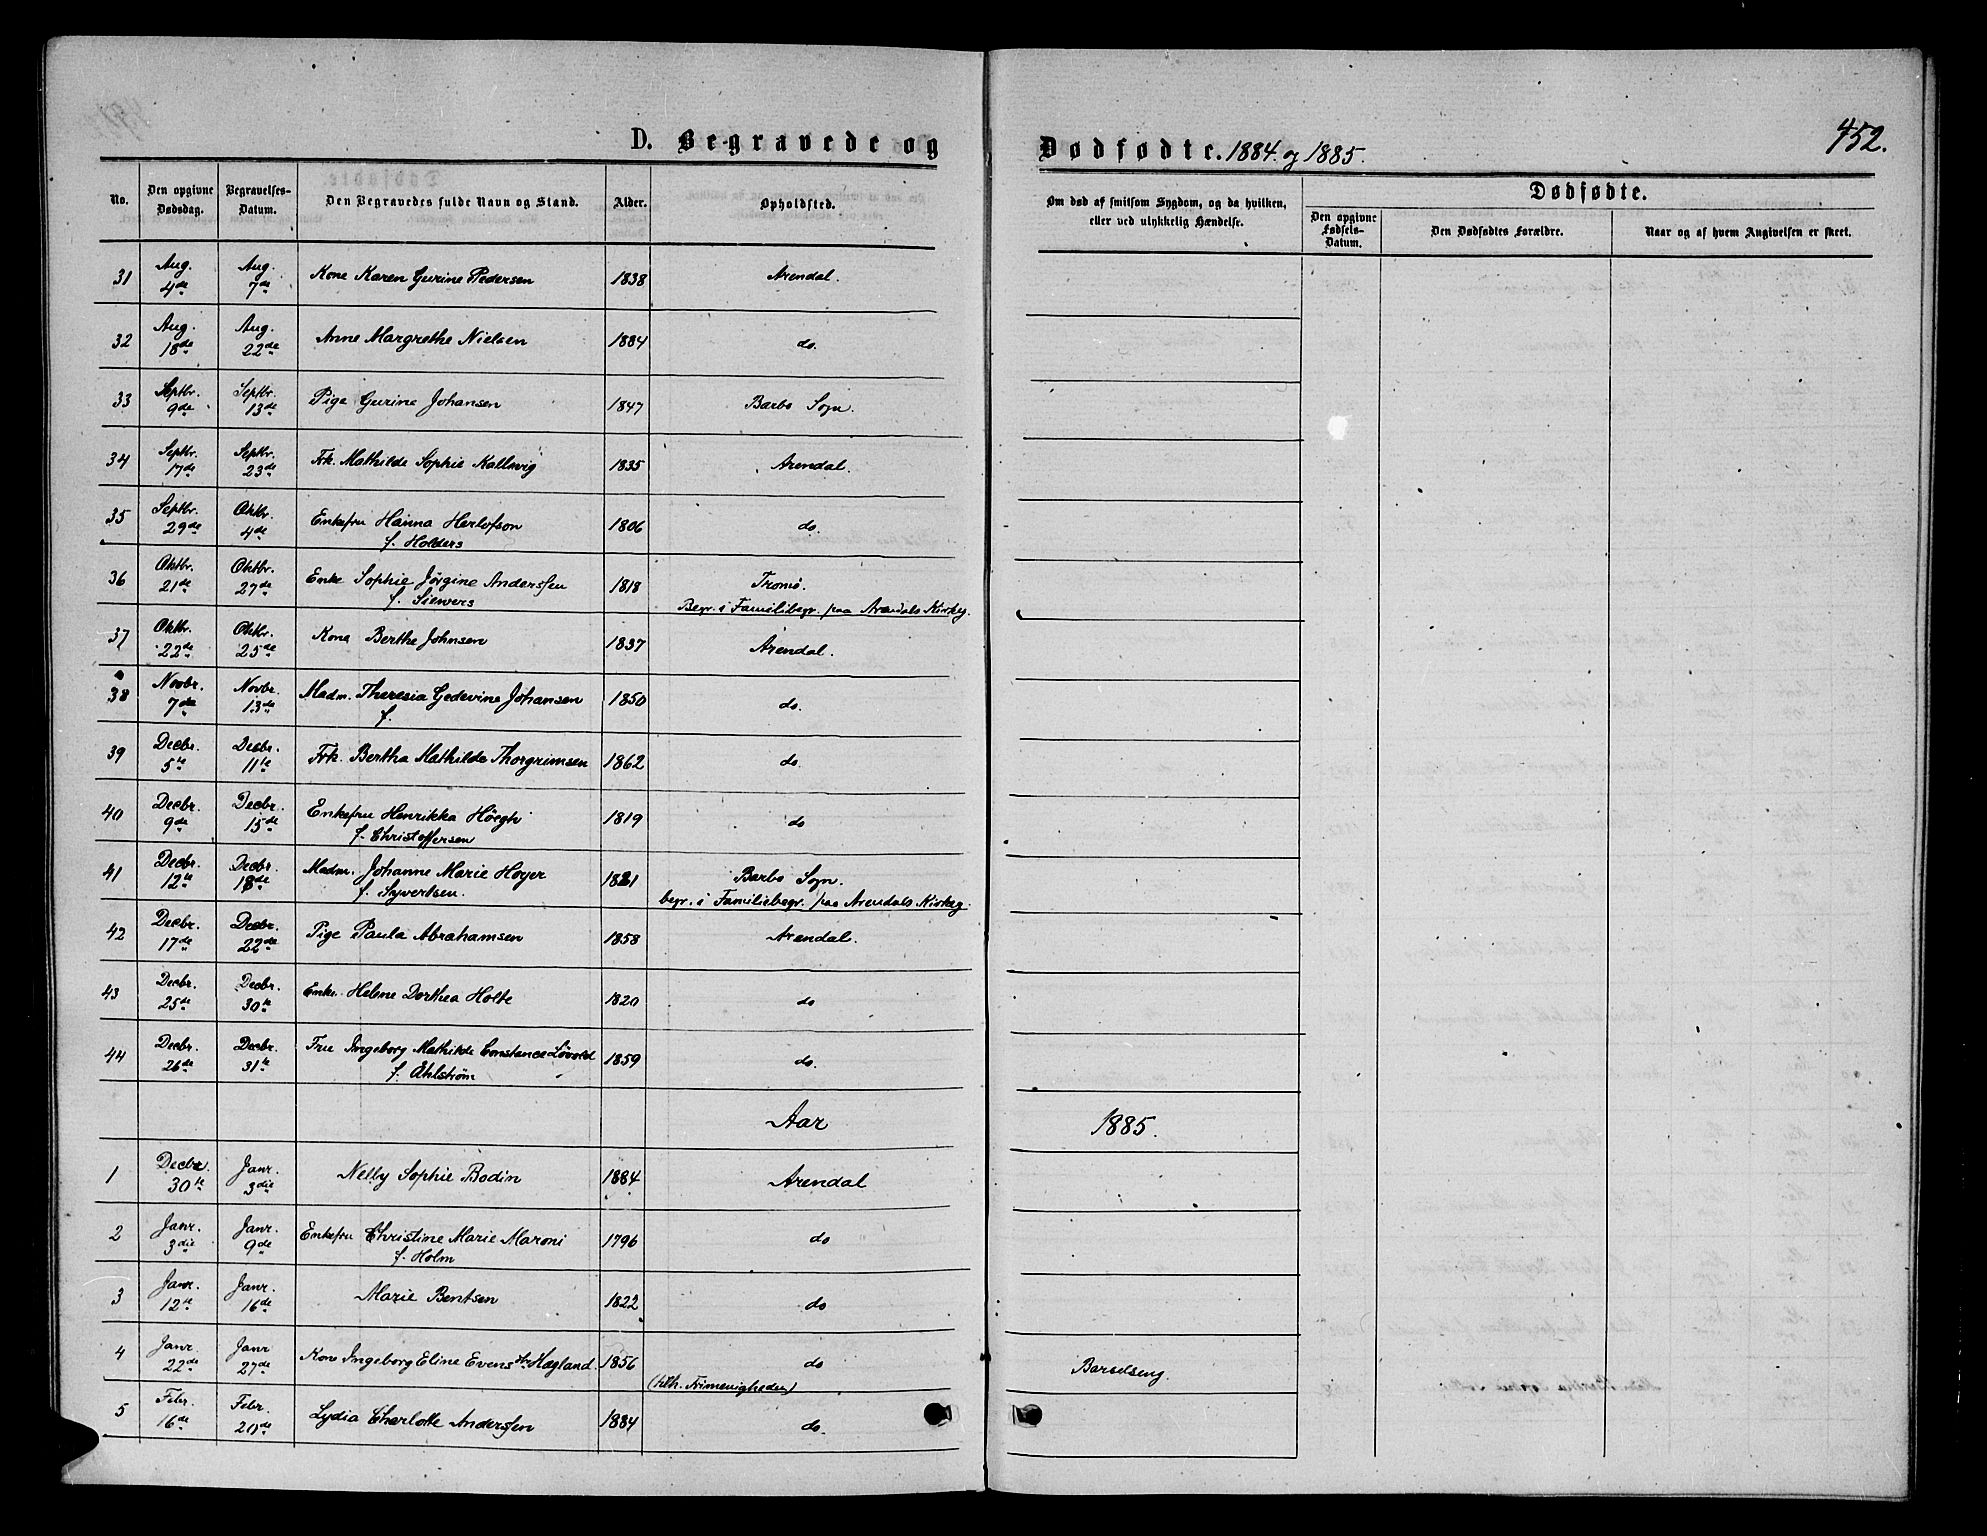 452.
D. Begravede og Dødfødte. 1884. og 1885.
No. Den opgivne Dødsdag. Begravelses-Datum. Den Begravedes fulde Navn og Stand. Alder. Opholdsted. Om død af smitsom Sygdom, og da hvilken, eller ved ulykkelig Hændelse. Dødfødte.
Den opgivne Fødsels-Datum. Den Dødfødtes Forældre. Naar og af hvem Angivelsen er skeet.
31 Aug. 4de Aug. 7de Kone Karen Gurine Pedersen 1838 Arendal.
32 Aug. 18de Aug. 22de Anne Margrethe Nielsen 1884 do.
33 Septbr. 9de Septbr. 13de Pige Gurine Johansen 1847 Barbo Sogn.
34 Septbr. 17de Septbr. 23de Frk. Mathilde Sophie Kallevig 1835 Arendal.
35 Septbr. 29de Oktbr. 4de Enkefru Hanna Herlofson 1806 do.
f. Holders
36 Oktbr. 21de Oktbr. 27de Enke Sophie Jörgine Anderssen 1818 Tromö.
f. Siewers Begr. i Familibegr. paa Arendals Kirkeg.
37 Oktbr. 22de Oktbr. 25de Kone Berthe Johnsen 1837 Arendal.
38 Novbr. 7de Novbr. 13de Madm. Theresia Gedevine Johansen 1850 do.
f.
39 Decbr. 5te Decbr. 11te Frk. Bertha Mathilde Thorgrimsen 1862 do.
40 Decbr. 9de Decbr. 15de Enkefru Henrikka Höegh 1819 do
f. Christoffersen
41 Decbr. 12te Decbr. 18de Madm. Johanne Marie Hoyer 1821 Barbo Sogn.
f. Syvertsen. begr. i Familiebegr. paa Arendals Kirkeg.
42 Decbr. 17de Decbr. 22de Pige Paula Abrahamsen 1858 Arendal.
43 Decbr. 25de Decbr. 30te Enke. Helene Dorthea Holte 1820 do
44 Decbr. 26de Decbr. 31te Fru Ingeborg Mathilde Constance Lövold 1859 do.
f. Ahlström
Aar 1885.
1 Decbr. 30te Janr. 3die Nelly Sophie Bodin 1884 Arendal
2 Janr. 3die Janr. 9de Enkefru Christine Marie Maroni 1796 do
f. Holm
3 Janr. 12te Janr. 16de Marie Bentsen 1822 do
4 Janr. 22de Janr 27de Kone Ingeborg Eline Evens Hægland. 1856 do Barselseng.
(tilh. Frimenigheden)
5 Febr. 16de Febr. 20de Lydia Charlotte Anderssen 1884 do.